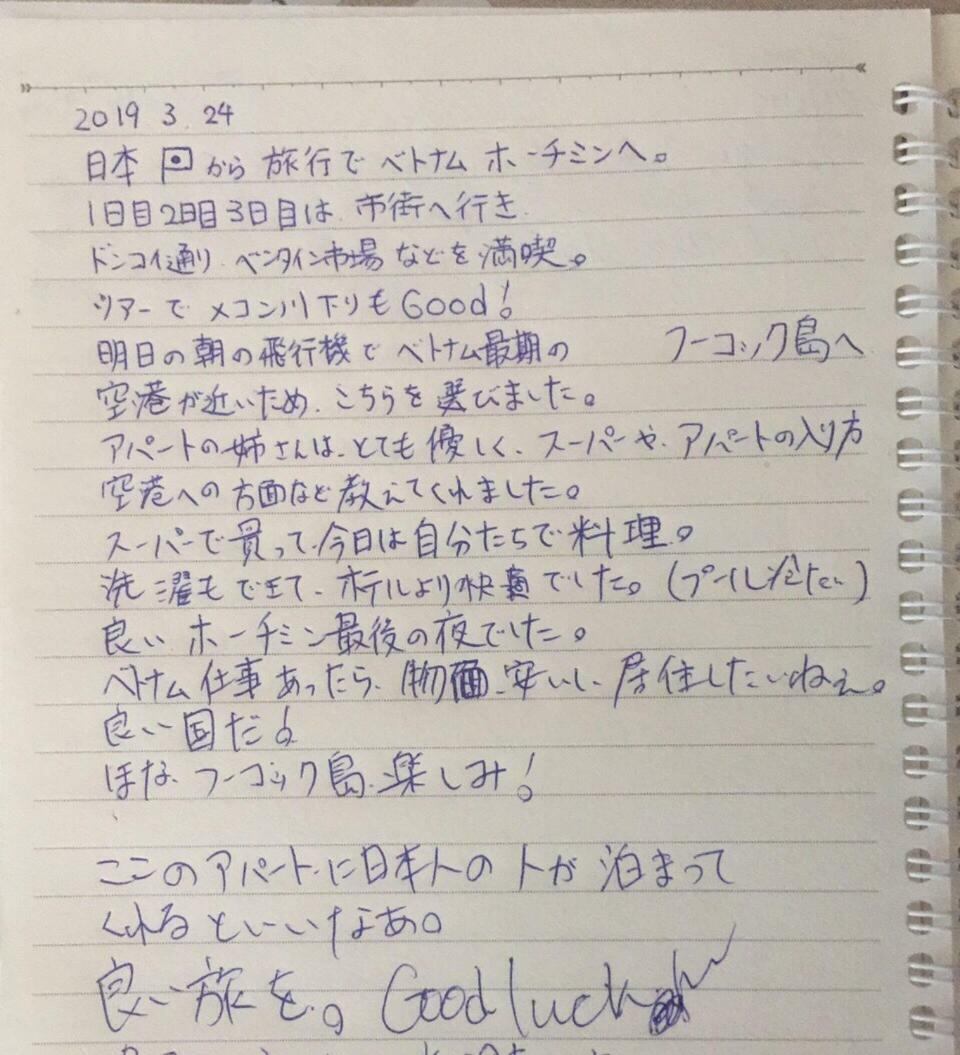 2019 3. 24
日本 から 旅行で ベトナム ホーチミンへ。
1日目2日目3日目は 市街へ行き
ドンコイ通り ベンタイン市場 などを 満喫。
ツアーで メコン川下りも Good!
明日の朝の飛行機で ベトナム最期の フーコック島へ
空港が近いため、こちらを 選びました。
アパートの姉さんは、とても 優しく、スーパーや、アパートの入り方
空港への 方面など 教えてくれました。
スーパーで 買って、今日は 自分たちで 料理。
洗濯も できて、ホテルより快適でした。(プール冷たい)
良い ホーチミン最後の夜でした。
ベトナム 仕事 あったら、物価 安いし、居住したいねぇ。
良い 国だ!
ほな、フーコック島 楽しみ!
ここの アパートに 日本人の 人が 泊まって
くれる といいなあ。
良い旅を。Good luck